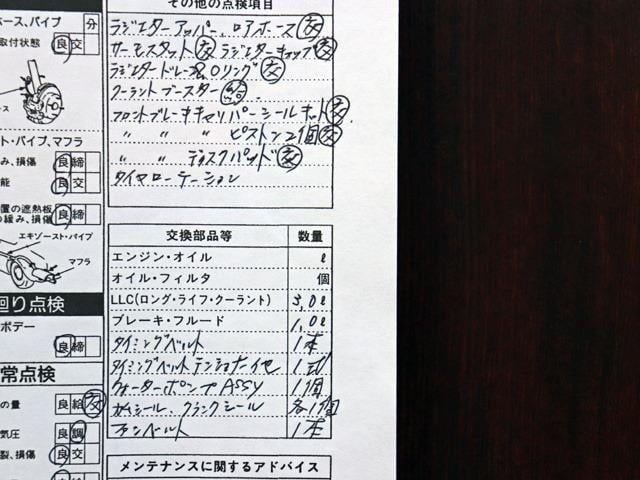 その他の点検項目
ラジエターアッパー、ロアホース 交
サーモスタット 交 ラジエターキャップ 交
ラジエタードレーン Oリング 交
クーラントブースター
フロントブレーキキャリパーシールキット 交
〃 〃 〃 ピストン2個 交
〃 〃 ディスクパッド 交
タイヤローテーション
ホース、パイプ 分
取付状態 良 交
ース
ト・パイプ、マフラ
み、損傷 良 締
能 良 交
置の遮熱板
の緩み、損傷 良 締
エキゾースト・パイプ
マフラ
廻り点検
ボデー
良 締
常点検
の量 良 給 交
気圧 良 調
裂、損傷 良 交
良
交換部品等 数量
エンジン・オイル ℓ
オイル・フィルタ 個
LLC(ロング・ライフ・クーラント) 5,0ℓ
ブレーキ・フルード 1,0ℓ
タイミングベルト 1本
タイミングベルトテンショナー他 1式
ウォーターポンプASSY 1個
カムシール、クランクシール 各1個
ファンベルト 1本
メンテナンスに関するアドバイス